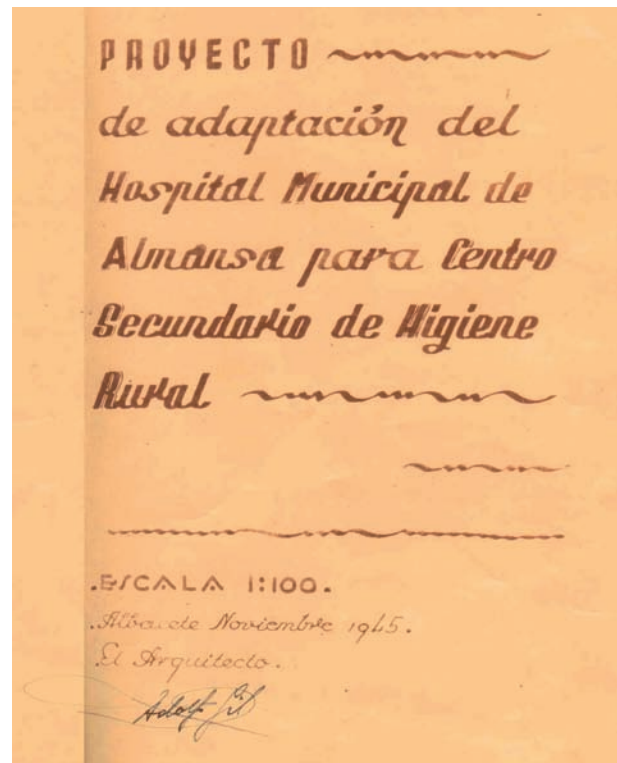 PROYECTO
de adaptación del
Hospital Municipal de
Almansa para Centro
Secundario de Higiene
Rural
.ESCALA 1:100.
.Albacete Noviembre 1945.
El Arquitecto.
Adolf Gil